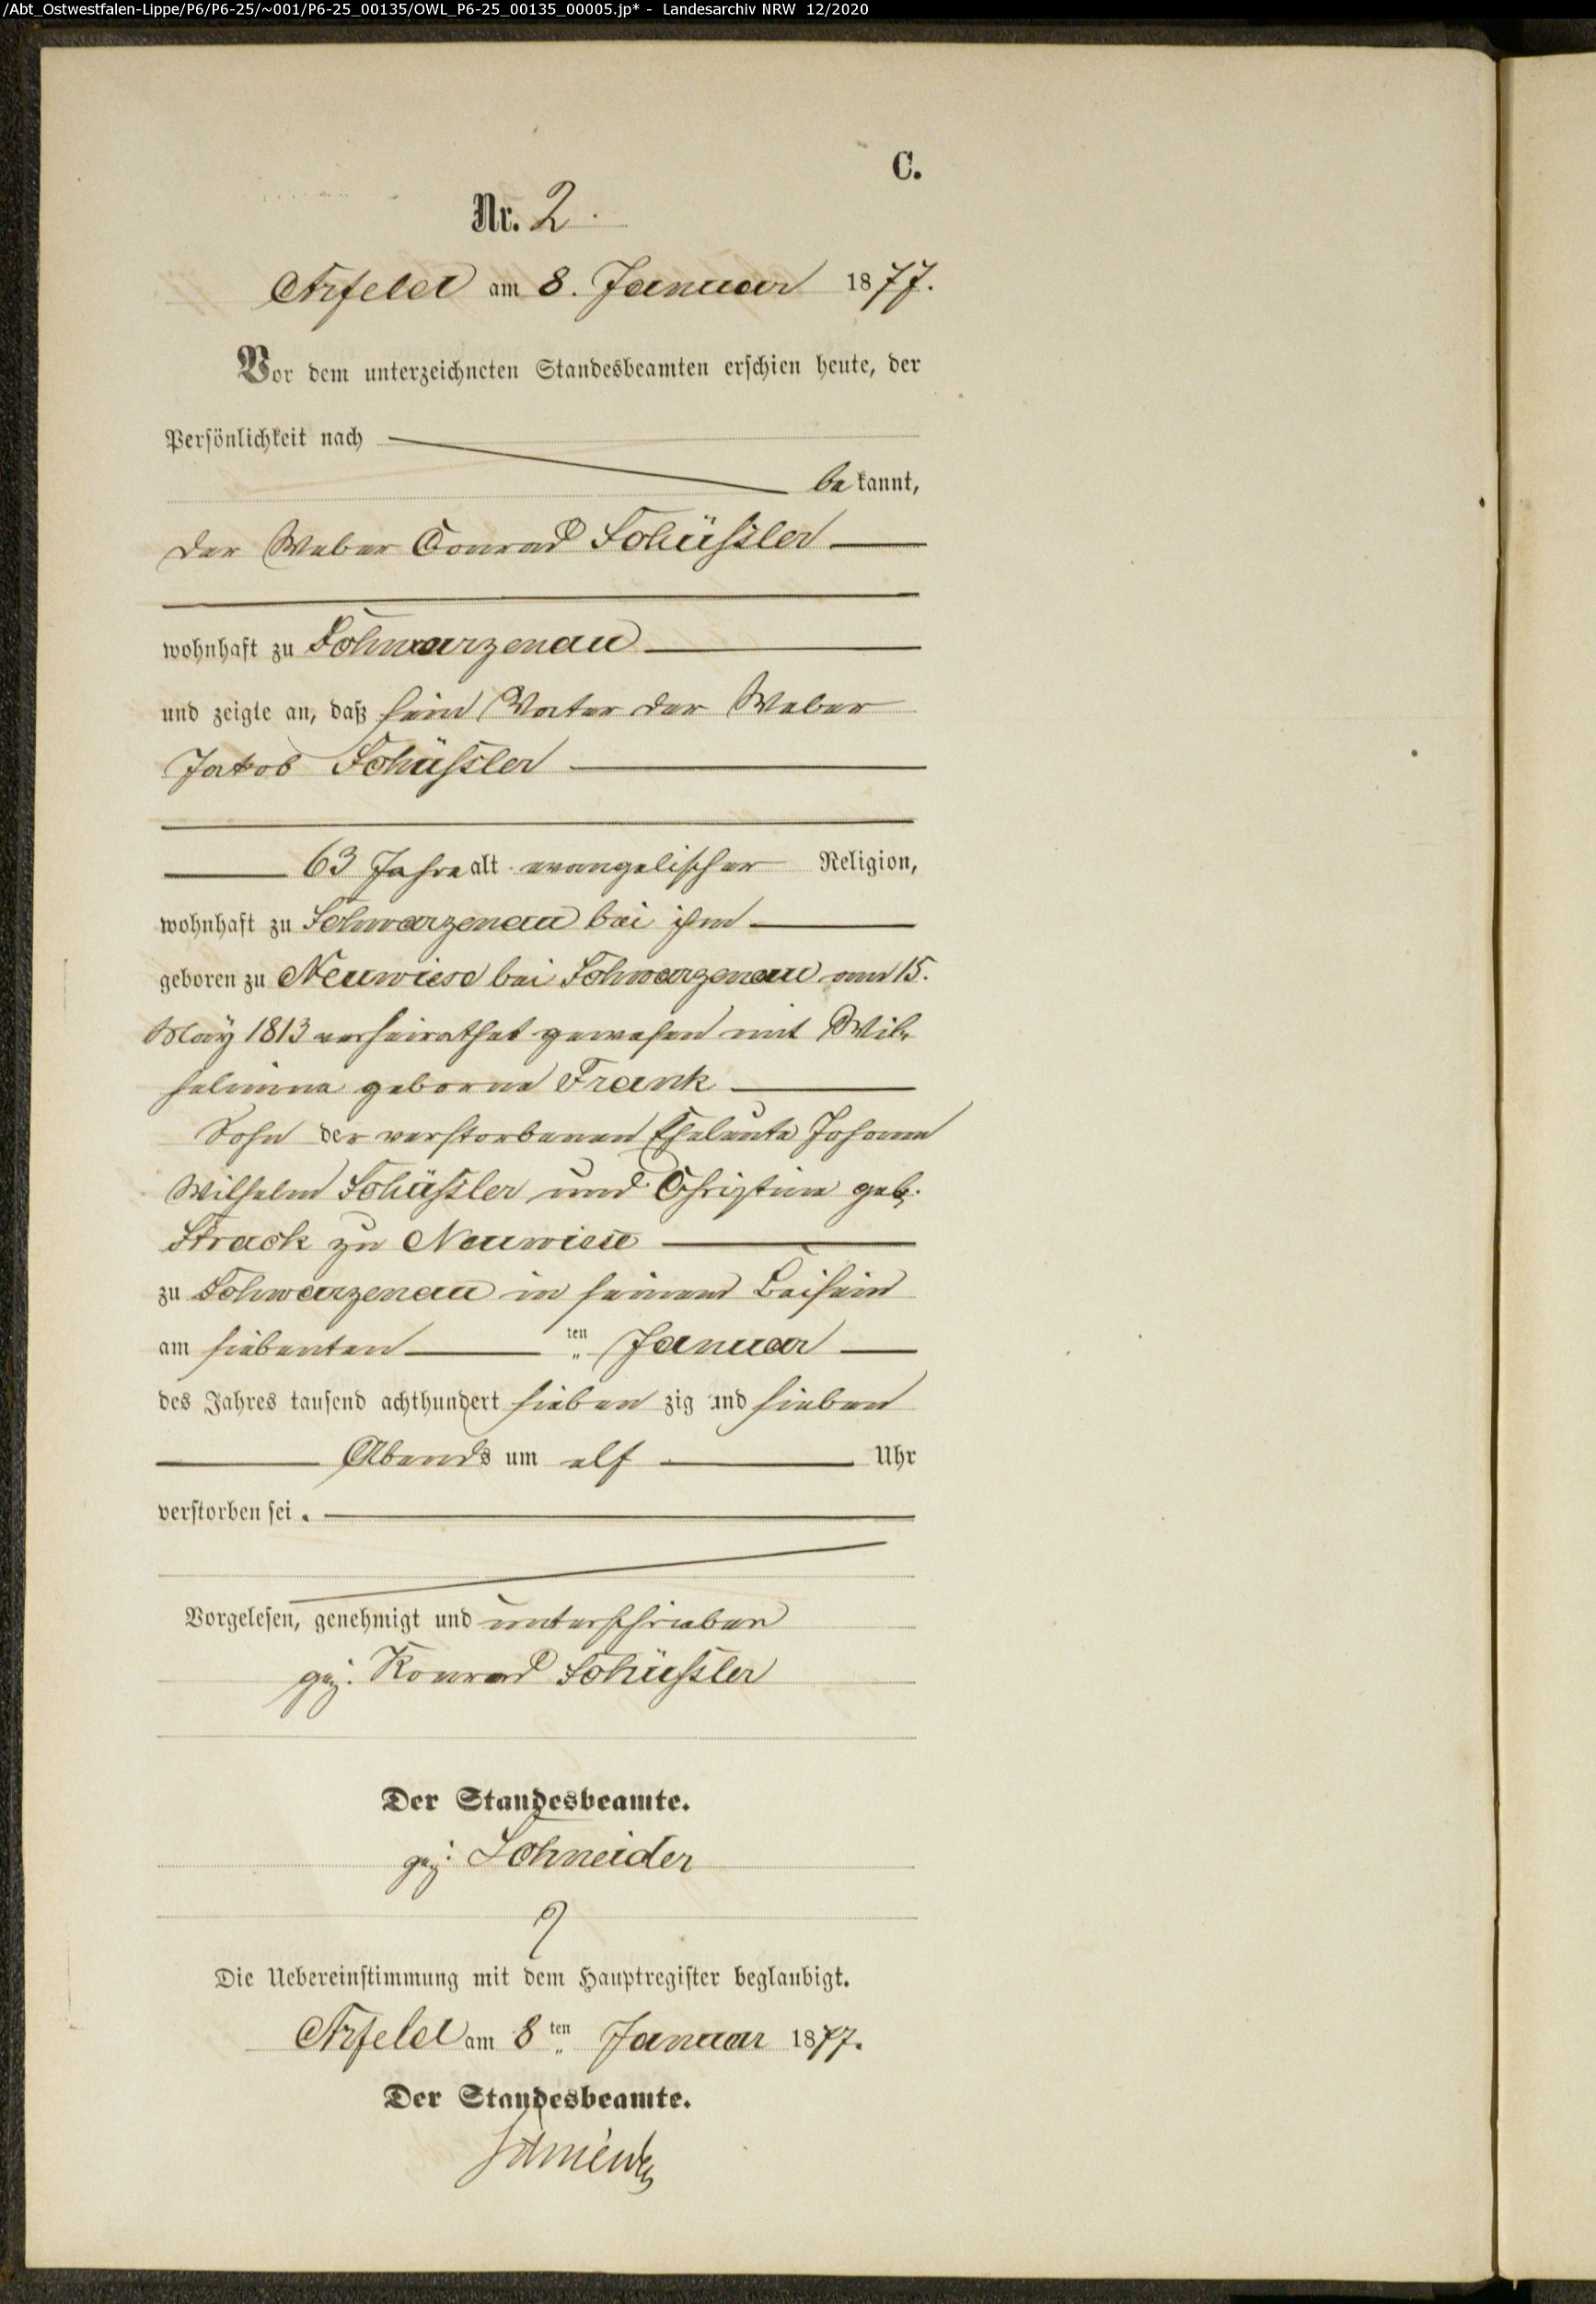 /Abt_Ostwestfalen-Lippe/P6/P6-25/~001/P6-25_00135/OWL_P6-25_00135_00005.jp* - Landesarchiv NRW 12/2020
C.
Nr. 2.
Arfeld am 8. Januar 1877.
Vor dem unterzeichneten Standesbeamten erschien heute, der
Persönlichkeit nach
bekannt,
der Weber Conrad Schüßler
wohnhaft zu Schwarzenau
und zeigte an, daß sein Vater der Weber
Jakob Schüßler
63 Jahre alt evangelischer Religion,
wohnhaft zu Schwarzenau bei ihm
geboren zu Neuwiese bei Schwarzenau am 15.
May 1813 verheirathet gewesen mit Wil-
helmine geborne Frank
Sohn der verstorbenen Eheleute Johann
Wilhelm Schüßler und Christine geb.
Strack zu Neuwiese
zu Schwarzenau in seinem Beisein
am siebenten ten Januar
des Jahres tausend achthundert siebenzig und sieben
Abends um elf Uhr
verstorben sei.
Vorgelesen, genehmigt und unterschrieben
gez. Konrad Schüßler
Der Standesbeamte.
gez. Schneider
Die Uebereinstimmung mit dem Hauptregister beglaubigt.
Arfeld am 8ten Januar 1877.
Der Standesbeamte.
Schneider